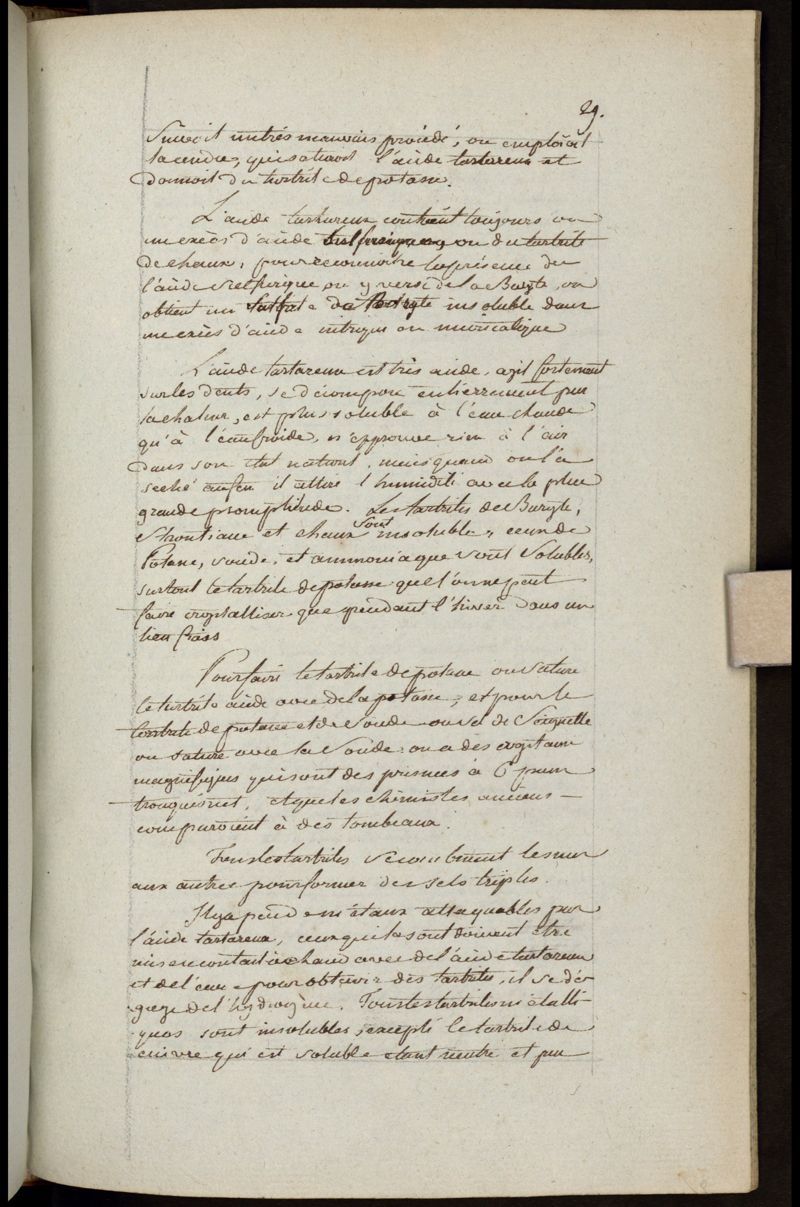 29.
Suivoit un très mauvais procédé, on employoit
la cendre, qui saturoit l'acide tartareux et
donnoit du tartrite de potasse.
L'acide tartareux contient toujours ou
un excès d'acide sulfurique ou du tartrite
de chaux, pour reconnoitre la présence de
l'acide sulfurique on y verse de la Baryte, on
obtient un sulfate de Baryte insoluble dans
un excès d'acide nitrique ou muriatique
L'acide tartareux est très acide, agit fortement
sur les dents, se décompose entierrement par
la chaleur, est plus soluble à l'eau chaude
qu'à l'eau froide, n'épprouve rien à l'air
dans son état naturel, mais quand on l'a
seché au feu il attire l'humidité avec la plus
grande promptitude. Les tartrites de Baryte,
Strontiane et chaux sont insoluble, ceux de
Potasse, soude, et ammoniaque sont solubles,
surtout le tartrite de potasse que l'on ne peut
faire crystalliser que pendant l'hiver dans un
lieu frais
Pour faire le tartrite de potasse on sature
le tartrite acide avec de la potasse, et pour le
tartrite de potasse et de soude ou sel de Seignette
on sature avec la soude: on a des crystaux
magnifiques qui sont des prismes à 6 pans
tronqués net, et que les chimistes anciens
comparoient à des tombeaux.
Tous les tartrites se combinent les uns
aux autres pour former des sels triples.
Il y a peu de métaux attaquables par
l'acide tartareux, ceux qui le sont doivent être
mis en contact à chaud avec de l'acide tartareux
et de l'eau pour obtenir des tartrites, il se dé-
gage de l'hydrogène. Tous les tartrites métalli-
ques sont insolubles, excepté le tartrite de
cuivre qui est soluble étant neutre et peu